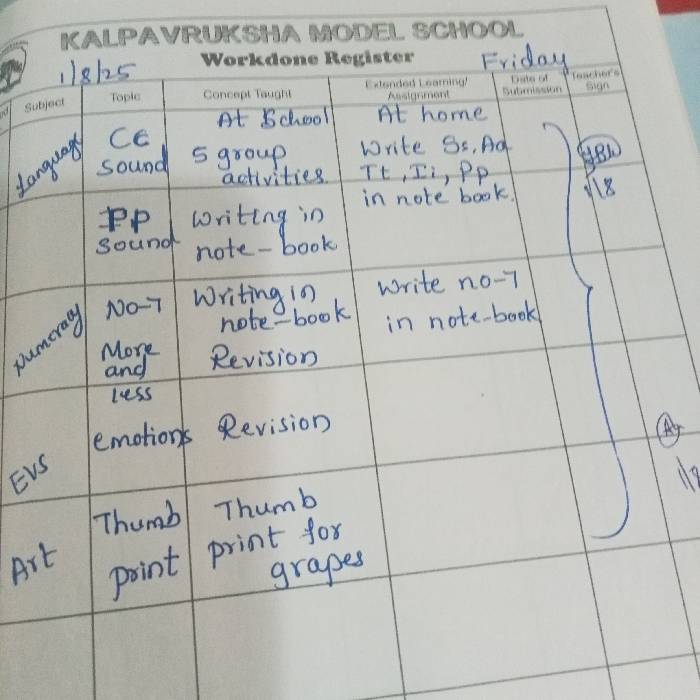 KALPAVRUKSHA MODEL SCHOOL
Workdone Register
1/8/25
Friday
Subject Topic Concept Taught Extended Learning/ Assignment Date of Submission Teacher's Sign
At School At home
Language
CE sound
5 group activities
Write Ss, Aa
Tt, Ii, Pp
in note book.
1/8
Pp sound
Writing in
note-book
Numeracy
No-7
Writing in
note-book
Write no-7
in note-book
More and less
Revision
EVS
emotions Revision
Art
Thumb print
Thumb
print for
grapes